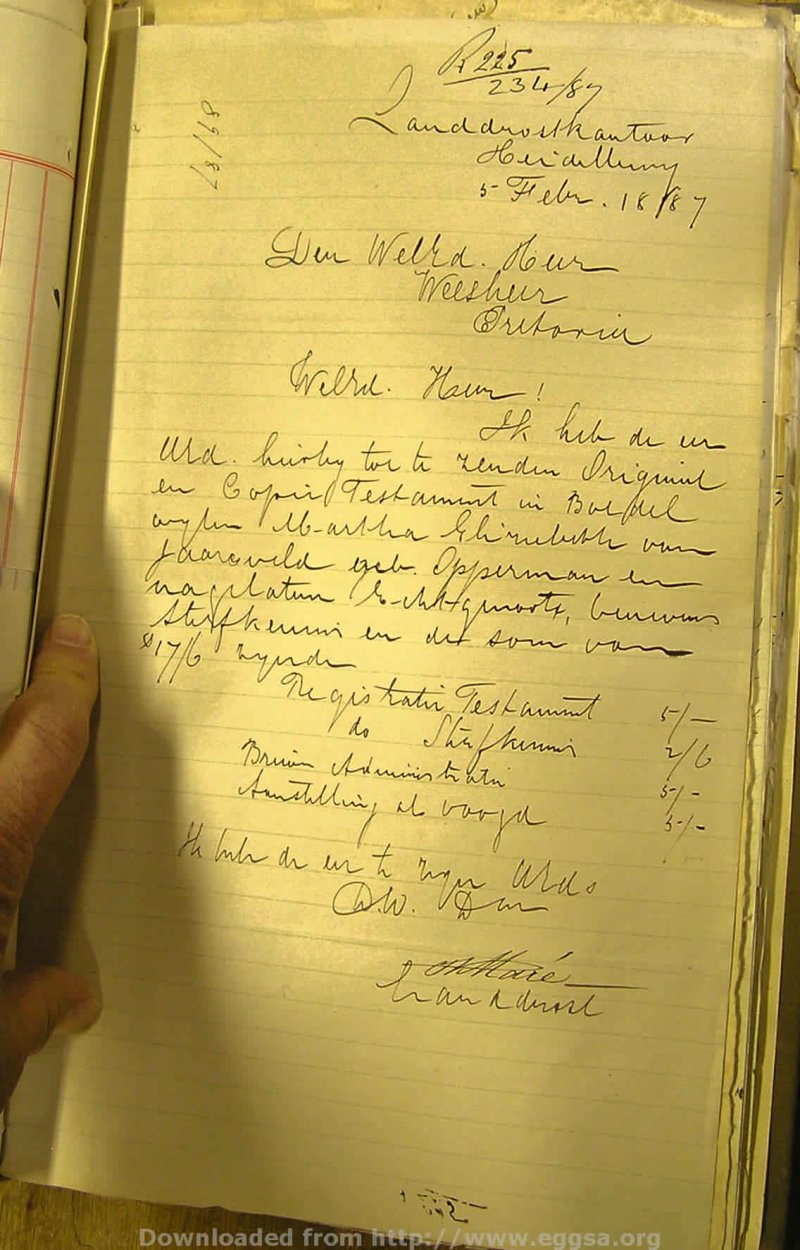 R 225
234/87
Landdrostkantoor
Heidelberg
5 Febr. 1887
Den WelEd. Heer
Weesheer
Pretoria
WelEd. Heer!
Ik heb de eer
UEd. hierby toe te zenden Origineel
en Copie Testament in Boedel
wylen Martha Elizabeth van
Jaarsveld geb. Opperman en
nagelaten Echtgenoote, benevens
Sterfkennis en de som van
17/6 zynde
Registratie Testament 5/-
do Sterfkennis 2/6
Brieven Administratie 5/-
Aanstelling als voogd 5/-
Ik heb de eer te zyn UEds
D.W. Dnr
Maré
Landdrost
Downloaded from http://www.eggsa.org